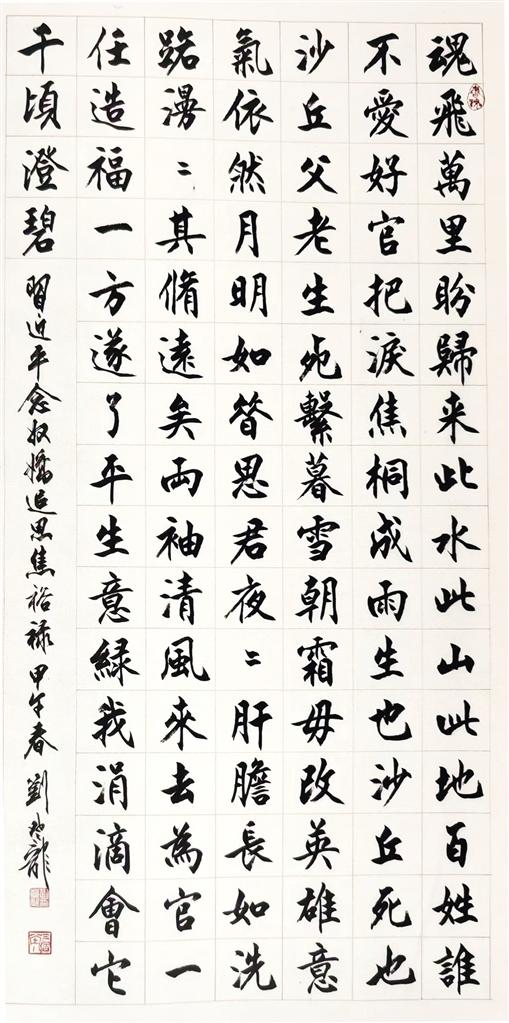 魂飛萬里盼歸来此水此山此地百姓誰
不愛好官把淚焦桐成雨生也沙丘死也
沙丘父老生死繫暮雪朝霜毋改英雄意
氣依然月明如昔思君夜〻肝膽長如洗
路漫〻其脩遠矣兩袖清風來去為官一
任造福一方遂了平生意緑我涓滴會它
千頃澄碧
習近平念奴嬌追思焦裕禄 甲午春 劉龍